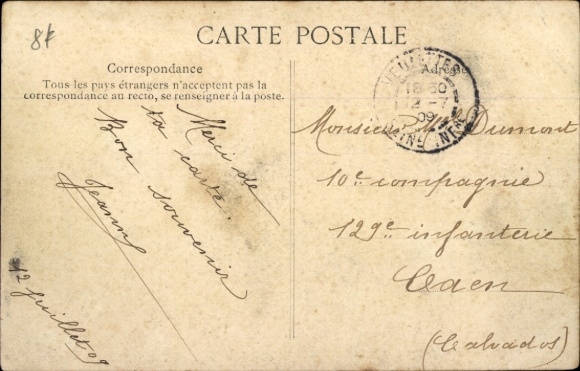 8f
CARTE POSTALE
Correspondance
Tous les pays étrangers n'acceptent pas la
correspondance au recto, se renseigner à la poste.
Adresse
18 30
12 - 7
09
SEINE INFRE
Merci de
ta carte.
Bon souvenir
Jeanne
12 Juillet 09
Monsieur Dumont
10e compagnie
129e infanterie
Caen
(Calvados)